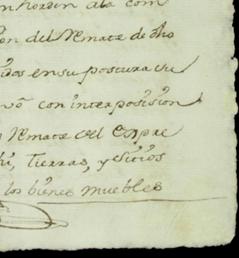 en horden ala com
on del Remate de dho
idos en su postura su
con interposision
Remate del expre
Tierras, y sitios
los bienes muebles